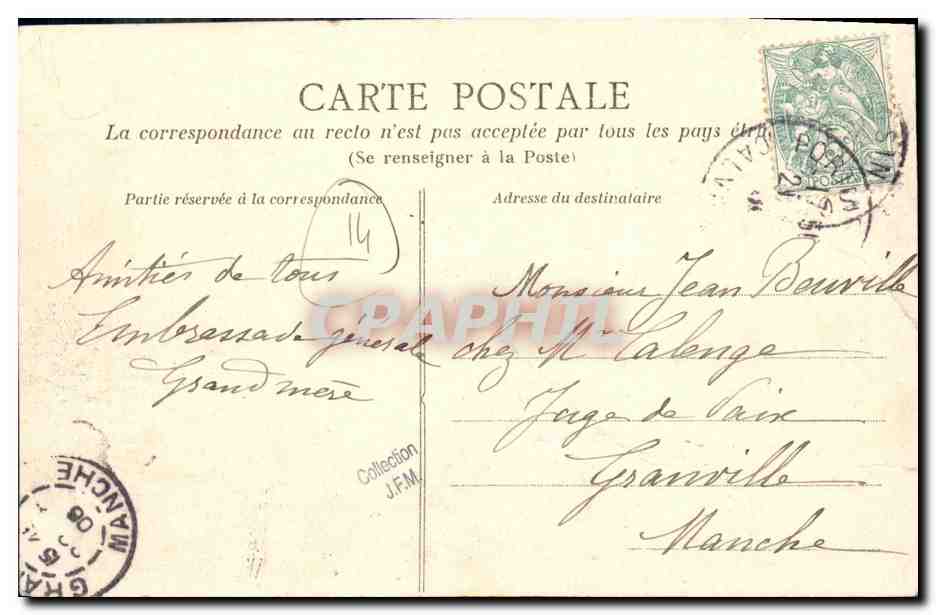 CARTE POSTALE
La correspondance au recto n'est pas acceptée par tous les pays étr
(Se renseigner à la Poste)
Partie réservée à la correspondance
Adresse du destinataire
14
Amitiés de tous
Embrassade générale
Grand mère
Monsieur Jean Beuville
chez Mr Calenge
Juge de Paix
Granville
Manche
CPAPHIL
Collection
J.F.M.
MANCHE
GRA
06